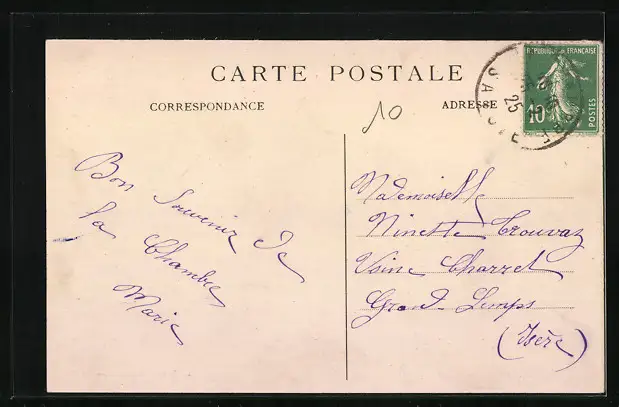 CARTE POSTALE
CORRESPONDANCE
10
ADRESSE
REPUBLIQUE FRANÇAISE
10
POSTES
25
Bon Souvenir de
la Chambre
Marie
Mademoiselle
Ninette Trouvaz
Usine Charret
Grand Lemps
(Isère)